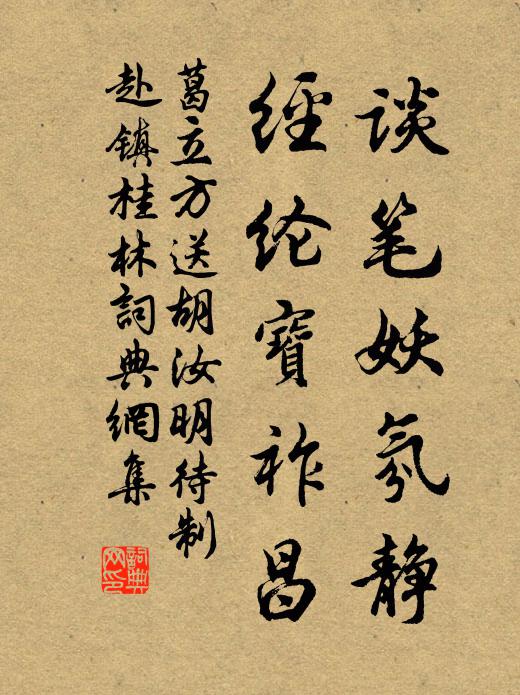 谈笔妖氛静
經纶寶祚昌
葛立方送胡汝明待制
赴镇桂林詞典網集
詞典网印